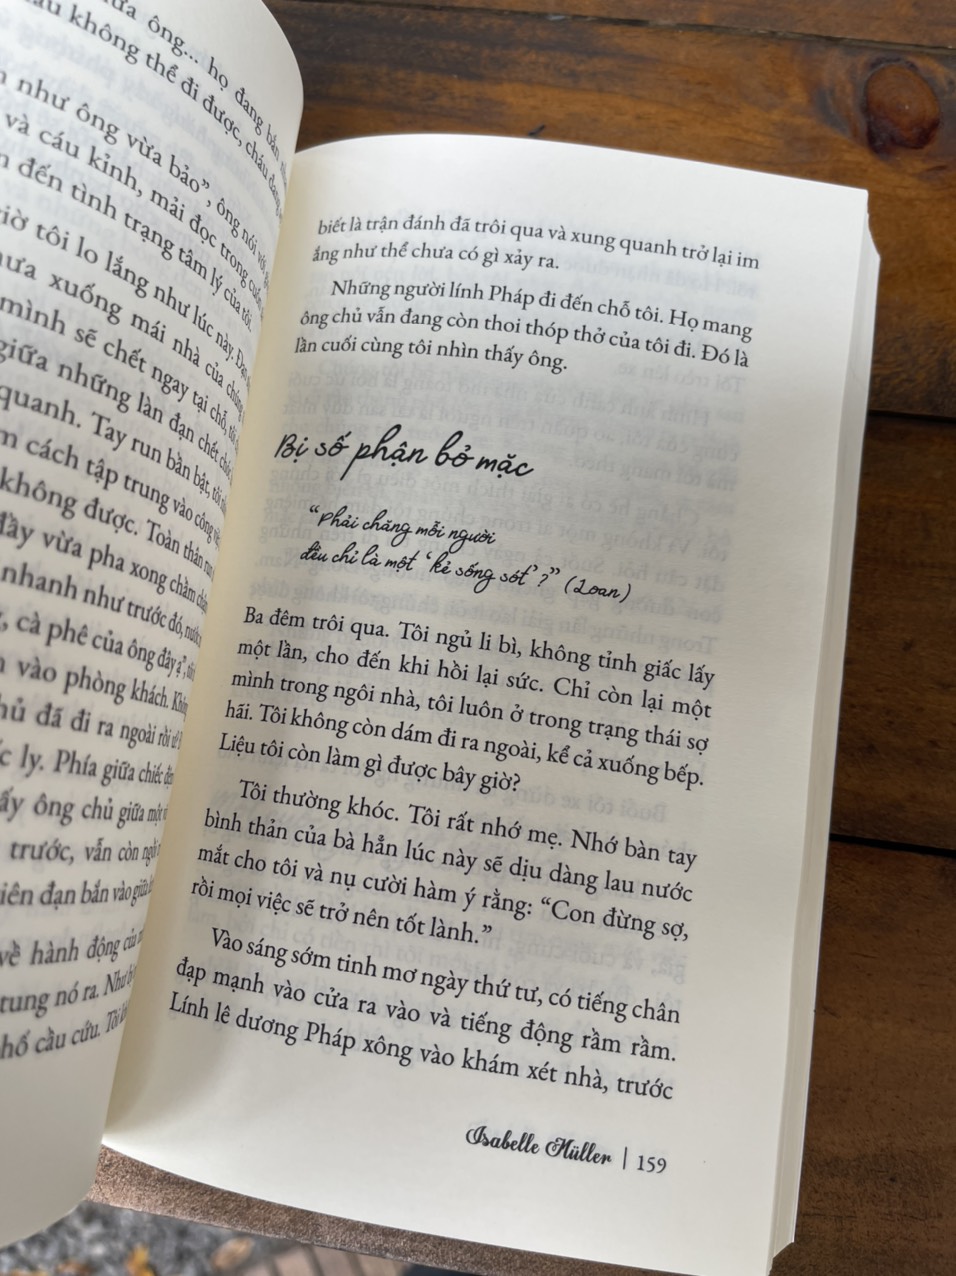 ưa ông... họ đang bắn
không thể đi được, cháu đang
như ông vừa bảo”, ông nói với
và cáu kỉnh, mải đọc trong cuốn
đến tình trạng tâm lý của tôi.
giờ tôi lo lắng như lúc này. Đạn
mưa xuống mái nhà của chúng
mình sẽ chết ngay tại chỗ, tôi
giữa những làn đạn chết chóc
quanh. Tay run bần bật, tôi
cách tập trung vào công việc
không được. Toàn thân run
đầy vừa pha xong chầm chậm
nhanh như trước đó,
cà phê của ông đây ạ”,
vào phòng khách.
đã đi ra ngoài rồi
ly. Phía giữa chiếc
ấy ông chủ giữa một
trước, vẫn còn ngồi
viên đạn bắn vào giữa
về hành động của
tung nó ra. Như
hổ cầu cứu. Tôi
biết là trận đánh đã trôi qua và xung quanh trở lại im
ắng như thể chưa có gì xảy ra.
Những người lính Pháp đi đến chỗ tôi. Họ mang
ông chủ vẫn đang còn thoi thóp thở của tôi đi. Đó là
lần cuối cùng tôi nhìn thấy ông.
Bị số phận bỏ mặc
“Phải chăng mỗi người
đều chỉ là một ‘kẻ sống sót’?” (Loan)
Ba đêm trôi qua. Tôi ngủ li bì, không tỉnh giấc lấy
một lần, cho đến khi hồi lại sức. Chỉ còn lại một
mình trong ngôi nhà, tôi luôn ở trong trạng thái sợ
hãi. Tôi không còn dám đi ra ngoài, kể cả xuống bếp.
Liệu tôi còn làm gì được bây giờ?
Tôi thường khóc. Tôi rất nhớ mẹ. Nhớ bàn tay
bình thản của bà hẳn lúc này sẽ dịu dàng lau nước
mắt cho tôi và nụ cười hàm ý rằng: “Con đừng sợ,
rồi mọi việc sẽ trở nên tốt lành.”
Vào sáng sớm tinh mơ ngày thứ tư, có tiếng chân
đạp mạnh vào cửa ra vào và tiếng động rầm rầm.
Lính lê dương Pháp xông vào khám xét nhà, trước
Isabelle Müller | 159